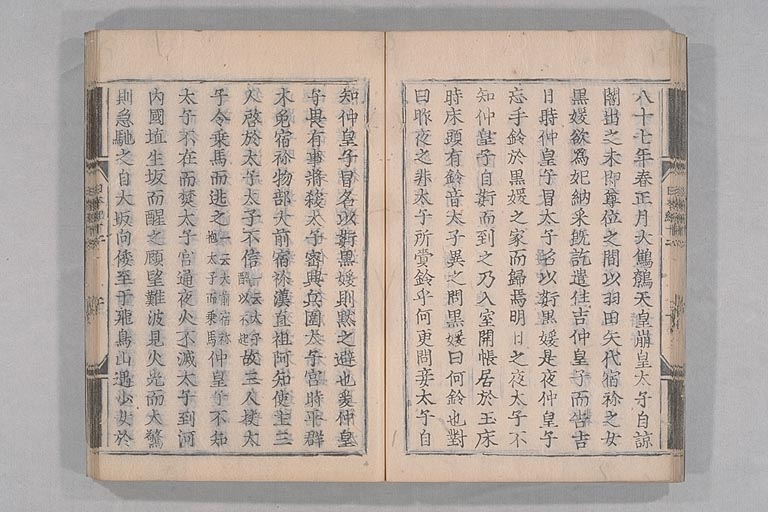 八十七年春正月大鷦鷯天皇崩皇太子自諒
闇出之未即尊位之間以羽田矢代宿祢之女
黒媛欲爲妃納采既訖遣住吉仲皇子而告吉
日時仲皇子冒太子名以姧黒媛是夜仲皇子
忘手鈴於黒媛之家而歸焉明日之夜太子不
知仲皇子自姧而到之乃入室開帳居於玉床
時床頭有鈴音太子異之問黒媛曰何鈴也對
曰昨夜之非太子所賷鈴乎何更問妾太子自
知仲皇子冒名以姧黒媛則黙之避也爰仲皇
子畏有事將殺太子密興兵圍太子宮時平群
木菟宿祢物部大前宿祢漢直祖阿知使主三
人啓於太子太子不信一云太子醉以不起故三人扶太
子令乘馬而逃之一云大前宿祢抱太子而乘馬仲皇子不知
太子不在而焚太子宮通夜火不滅太子到河
内國埴生坂而醒之顧望難波見火光而大驚
則急馳之自大坂向倭至于飛鳥山遇少女於